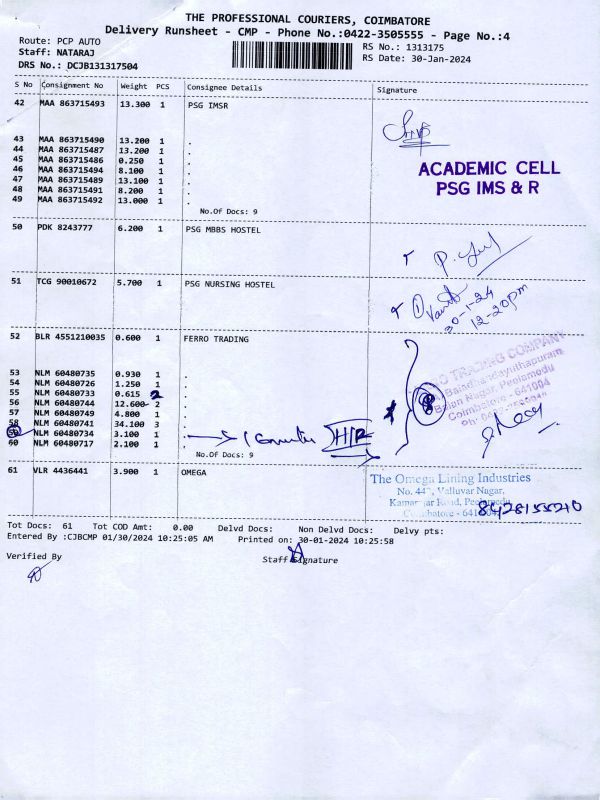 THE PROFESSIONAL COURIERS, COIMBATORE
Delivery Runsheet - CMP - Phone No.:0422-3505555 - Page No.:4
Route: PCP AUTO
RS No.: 1313175
Staff: NATARAJ
RS Date: 30-Jan-2024
DRS No.: DCJB131317504
S No Consignment No Weight PCS Consignee Details Signature
42 MAA 863715493 13.300 1 PSG IMSR
43 MAA 863715490 13.200 1 .
44 MAA 863715487 13.200 1 .
45 MAA 863715486 0.250 1 .
46 MAA 863715494 8.100 1 .
47 MAA 863715489 13.100 1 .
48 MAA 863715491 8.200 1 .
49 MAA 863715492 13.000 1 .
No.Of Docs: 9
ACADEMIC CELL
PSG IMS & R
50 PDK 8243777 6.200 1 PSG MBBS HOSTEL
51 TCG 90010672 5.700 1 PSG NURSING HOSTEL
30-1-24
12-20pm
52 BLR 4551210035 0.600 1 FERRO TRADING
53 NLM 60480735 0.930 1 .
54 NLM 60480726 1.250 1 .
55 NLM 60480733 0.615 2 .
56 NLM 60480744 12.600 2 .
57 NLM 60480749 4.800 1 .
58 NLM 60480741 34.100 3 .
59 NLM 60480734 3.100 1
60 NLM 60480717 2.100 1 .
No.Of Docs: 9
TRADING COMPANY
Nagar, Peelamedu
Coimbatore - 641004
61 VLR 4436441 3.900 1 OMEGA
The Omega Lining Industries
Valluvar Nagar,
Road, Peelamedu
8428155210
Tot Docs: 61 Tot COD Amt: 0.00 Delvd Docs: Non Delvd Docs: Delvy pts:
Entered By :CJBCMP 01/30/2024 10:25:05 AM Printed on: 30-01-2024 10:25:58
Verified By
Staff Signature